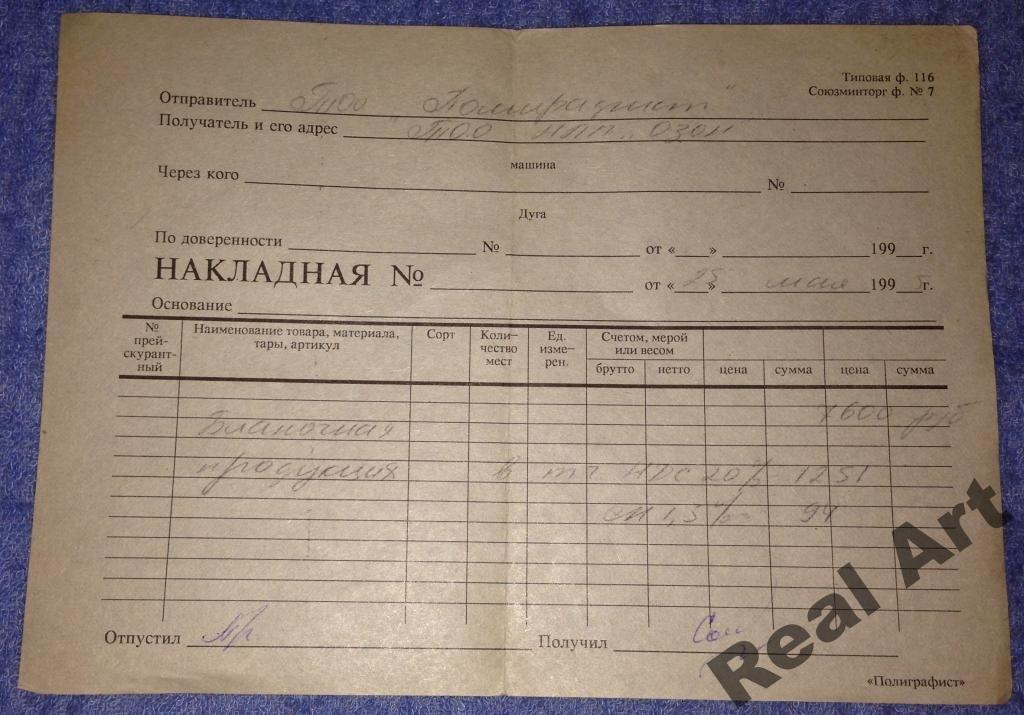 Типовая ф. 116
Союзминторг ф. № 7
Отправитель ТОО "Полиграфист"
Получатель и его адрес ТОО НПП "Озон"
машина
Через кого №
Дуга
По доверенности № от « » 199 г.
НАКЛАДНАЯ № от «25» мая 1995г.
Основание
№ прей-скурант-ный Наименование товара, материала, тары, артикул Сорт Коли-чество мест Ед. изме-рен. Счетом, мерой или весом
брутто нетто цена сумма цена сумма
7600 руб
Бланочная
продукция в тч НДС 20% 1251
СН 1,5% 94
Отпустил Получил
«Полиграфист»
Real Art